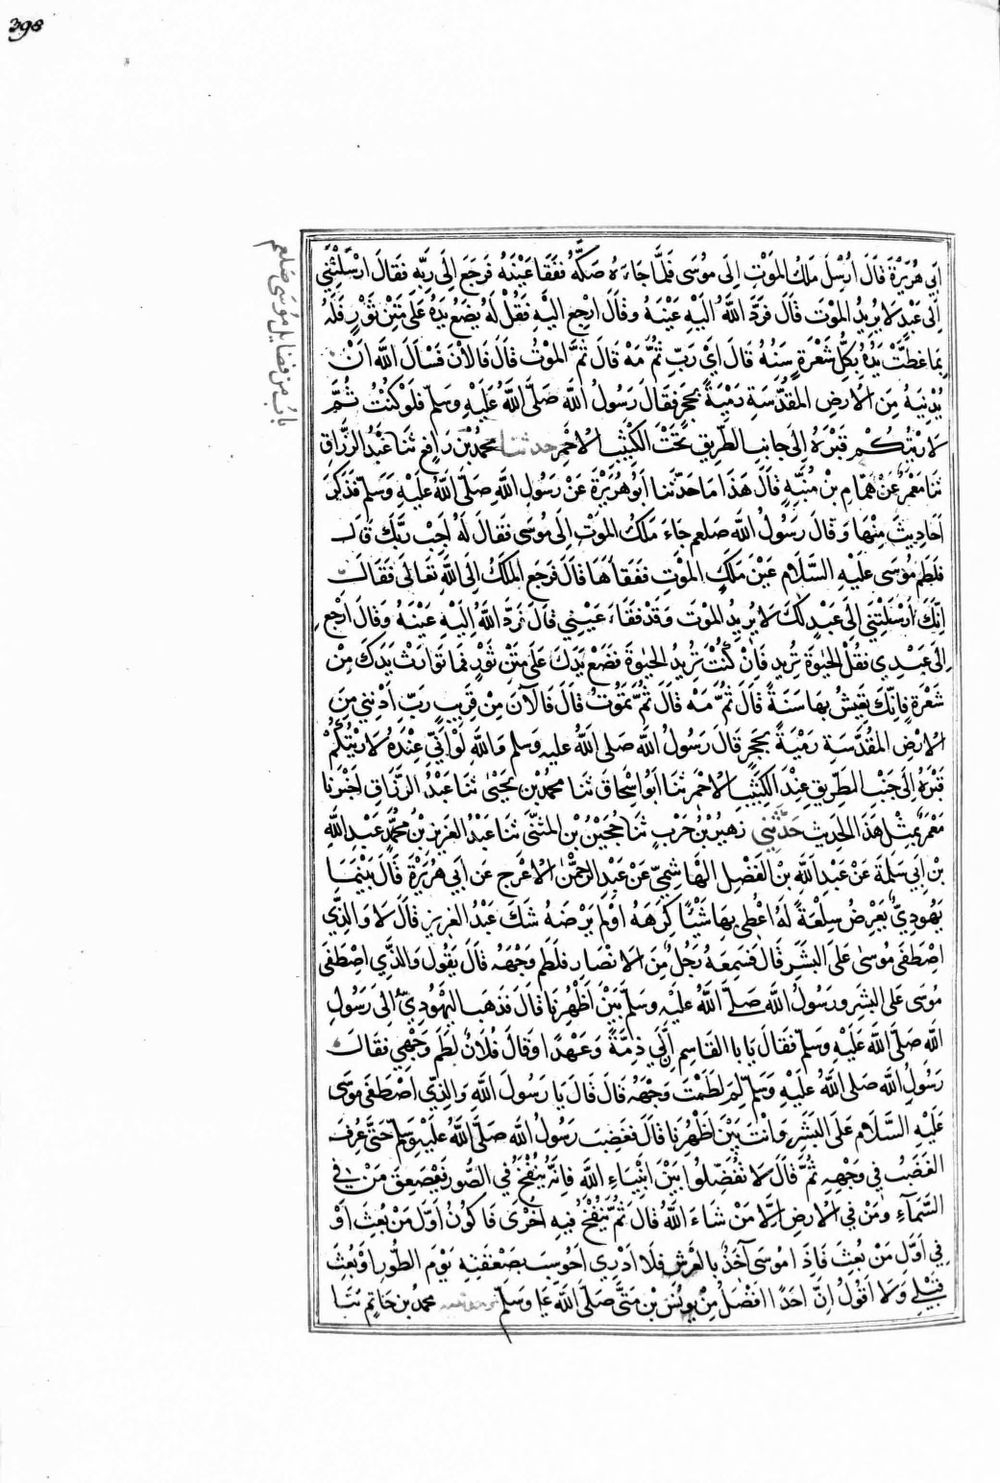 398
باب من فضايل موسى صلعم
ابي هريرة قال ارسل ملك الموت الى موسى فلما جاءه صكه ففقا عينه فرجع الى ربه فقال ارسلتني
الى عبد لا يريد الموت قال فرد الله اليه عينه وقال ارجع اليه فقل له يضع يده على متن ثور فله
بما غطت يده بكل شعرة سنة قال اي رب ثم مه قال ثم الموت قال فالان فسال الله ان
يدنيه من الارض المقدسة رمية بحجر فقال رسول الله صلى الله عليه وسلم فلو كنت ثم
لاريتكم قبره الى جانب الطريق تحت الكثيب الاحمر حدثنا محمد بن رافع ثنا عبد الرزاق
ثنا معمر عن همام بن منبه قال هذا ما حدثنا ابو هريرة عن رسول الله صلى الله عليه وسلم فذكر
احاديث منها وقال رسول الله صلعم جاء ملك الموت الى موسى فقال له اجب ربك قال
فلطم موسى عليه السلام عين ملك الموت ففقاها قال فرجع الملك الى الله تعالى فقال
انك ارسلتني الى عبد لك لا يريد الموت وقد فقاء عيني قال فرد الله اليه عينه وقال ارجع
الى عبدي فقل الحيوة تريد فان كنت تريد الحيوة فضع يدك على متن ثور فما توارت يدك من
شعرة فانك تعيش بها سنة قال ثم مه قال ثم تموت قال فالآن من قريب رب ادنني من
الارض المقدسة رمية بحجر قال رسول الله صلى الله عليه وسلم والله لو اني عنده لاريتكم
قبره الى جنب الطريق عند الكثيب الاحمر ثنا ابو اسحاق ثنا محمد بن يحيى ثنا عبد الرزاق اخبرنا
معمر بمثل هذا الحديث حدثني زهير بن حرب ثنا حجين بن المثنى ثنا عبد العزيز بن محمد عبد الله
بن ابي سلمة عن عبد الله بن الفضل الهاشمي عن عبد الرحمن الاعرج عن ابي هريرة قال بينما
يهودي يعرض سلعة له اعطي بها شيئا كرهه اولم يرضه شك عبد العزيز قال لا والذي
اصطفى موسى على البشر قال فسمعه رجل من الانصار فلطم وجهه قال يقول والذي اصطفى
موسى على البشر ورسول الله صلى الله عليه وسلم بين اظهرنا قال فذهب اليهودي الى رسول
الله صلى الله عليه وسلم فقال يا با القاسم ان لي ذمة وعهدا وقال فلان لطم وجهي فقال
رسول الله صلى الله عليه وسلم لم لطمت وجهه قال قال يا رسول الله والذي اصطفى موسى
عليه السلام على البشر وانت بين اظهرنا قال فغضب رسول الله صلى الله عليه وسلم حتى عرف
الغضب في وجهه ثم قال لا تفضلوا بين انبياء الله فانه ينفخ في الصور فيصعق من في
السماء ومن في الارض الا من شاء الله قال ثم ينفخ فيه اخرى فاكون اول من بعث او
في اول من بعث فاذا موسى آخذ بالعرش فلا ادري احوسب بصعقته يوم الطور او بعث
قبلي ولا اقول ان احدا افضل من يونس بن متى صلى الله عليه وسلم محمد بن حاتم ثنا